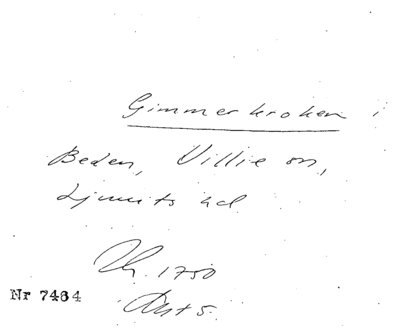 Gimmerkroken i
Beden, Villie sn,
Ljunits hd
Nr 7464